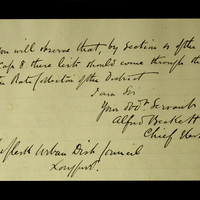 you will observe that, by section 4 of the
Cap 8 these lists should come through the
Rate Collector of the District
I am Sir
Your Obdt Servant
Alfred Beckett
Chief
Clerk Urban Dist Council
Longford.